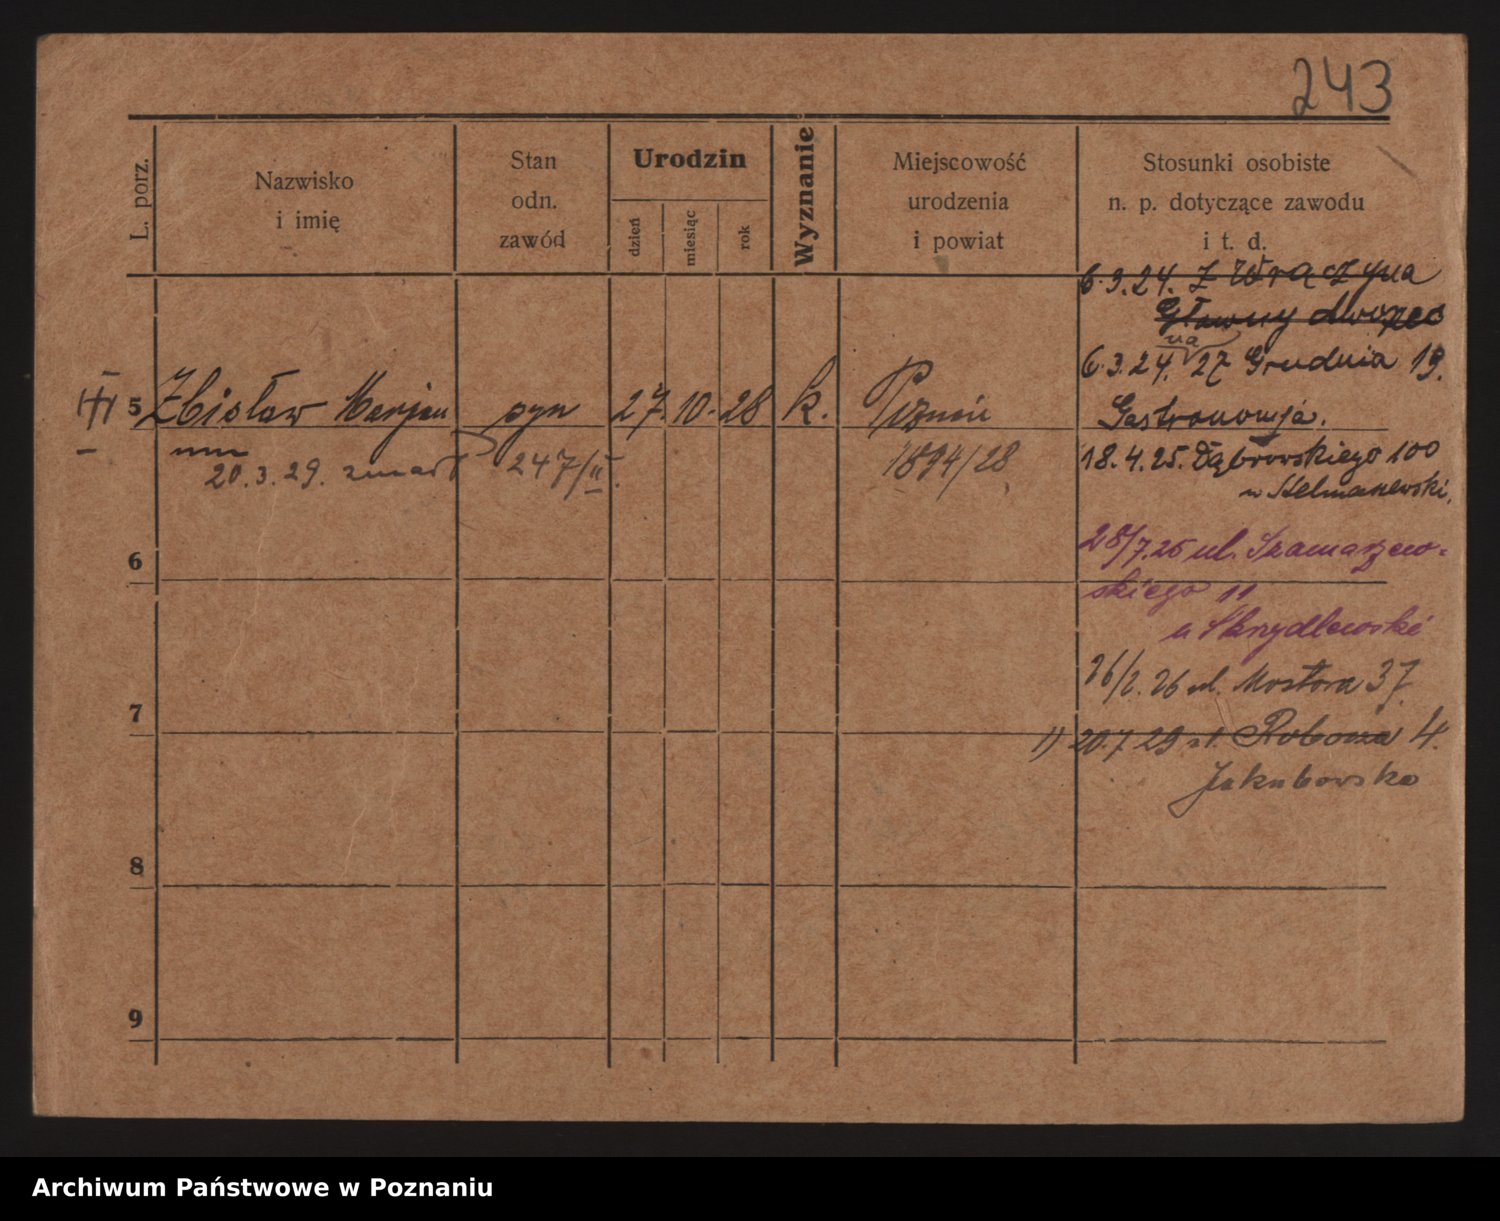 243
L. porz.
Nazwisko
i imię
Stan
odn.
zawód
Urodzin
dzień
miesiąc
rok
Wyznanie
Miejscowość
urodzenia
i powiat
Stosunki osobiste
n. p. dotyczące zawodu
i t. d.
6.3.24. z Wrączyna
Główny dworzec
6.3.24. na 27 Grudnia 19.
Gastronomja.
5 Zbisław Marjan syn 27. 10. 28 k. Poznań
20.3.29. zmarł 247/II. 1894/28
18.4.25. Dąbrowskiego 100
28/7.25 ul. Szamarzew-
skiego 11
u Skrzydlewski
6
26/2.26 ul. Mostowa 37
7
1) 20.7.29 ul. Robocza 4.
Jakubowska
8
9
Archiwum Państwowe w Poznaniu